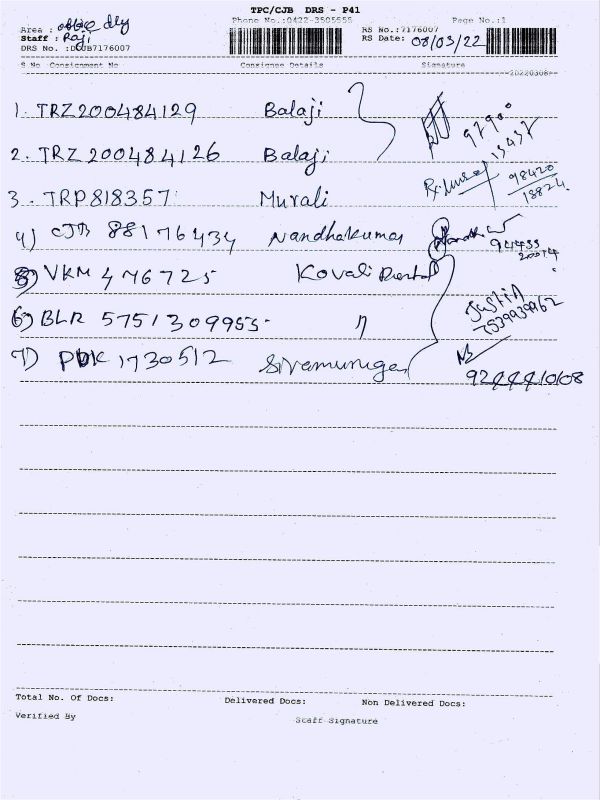 TPC/CJB DRS - P41
Phone No.:0422-3505555 Page No.:1
Area : office dly RS No.:7176007
Staff : Raji RS Date: 08/03/22
DRS No. :DCJB7176007
S No Consignment No Consignee Details Signature
20220308
1. TRZ200484129 Balaji 97900
13437
2. TRZ 200484126 Balaji
3. TRP818357 Murali 98420
18824
4) CJB 88176434 Nandhakumar 94433
20074
5) VKM 476725 Kovali Dental
6) BLR 5751309955 " Justin
7539939462
7) PDK 1730512 Sivamurugan
9244410108
Total No. Of Docs: Delivered Docs: Non Delivered Docs:
Verified By Staff Signature